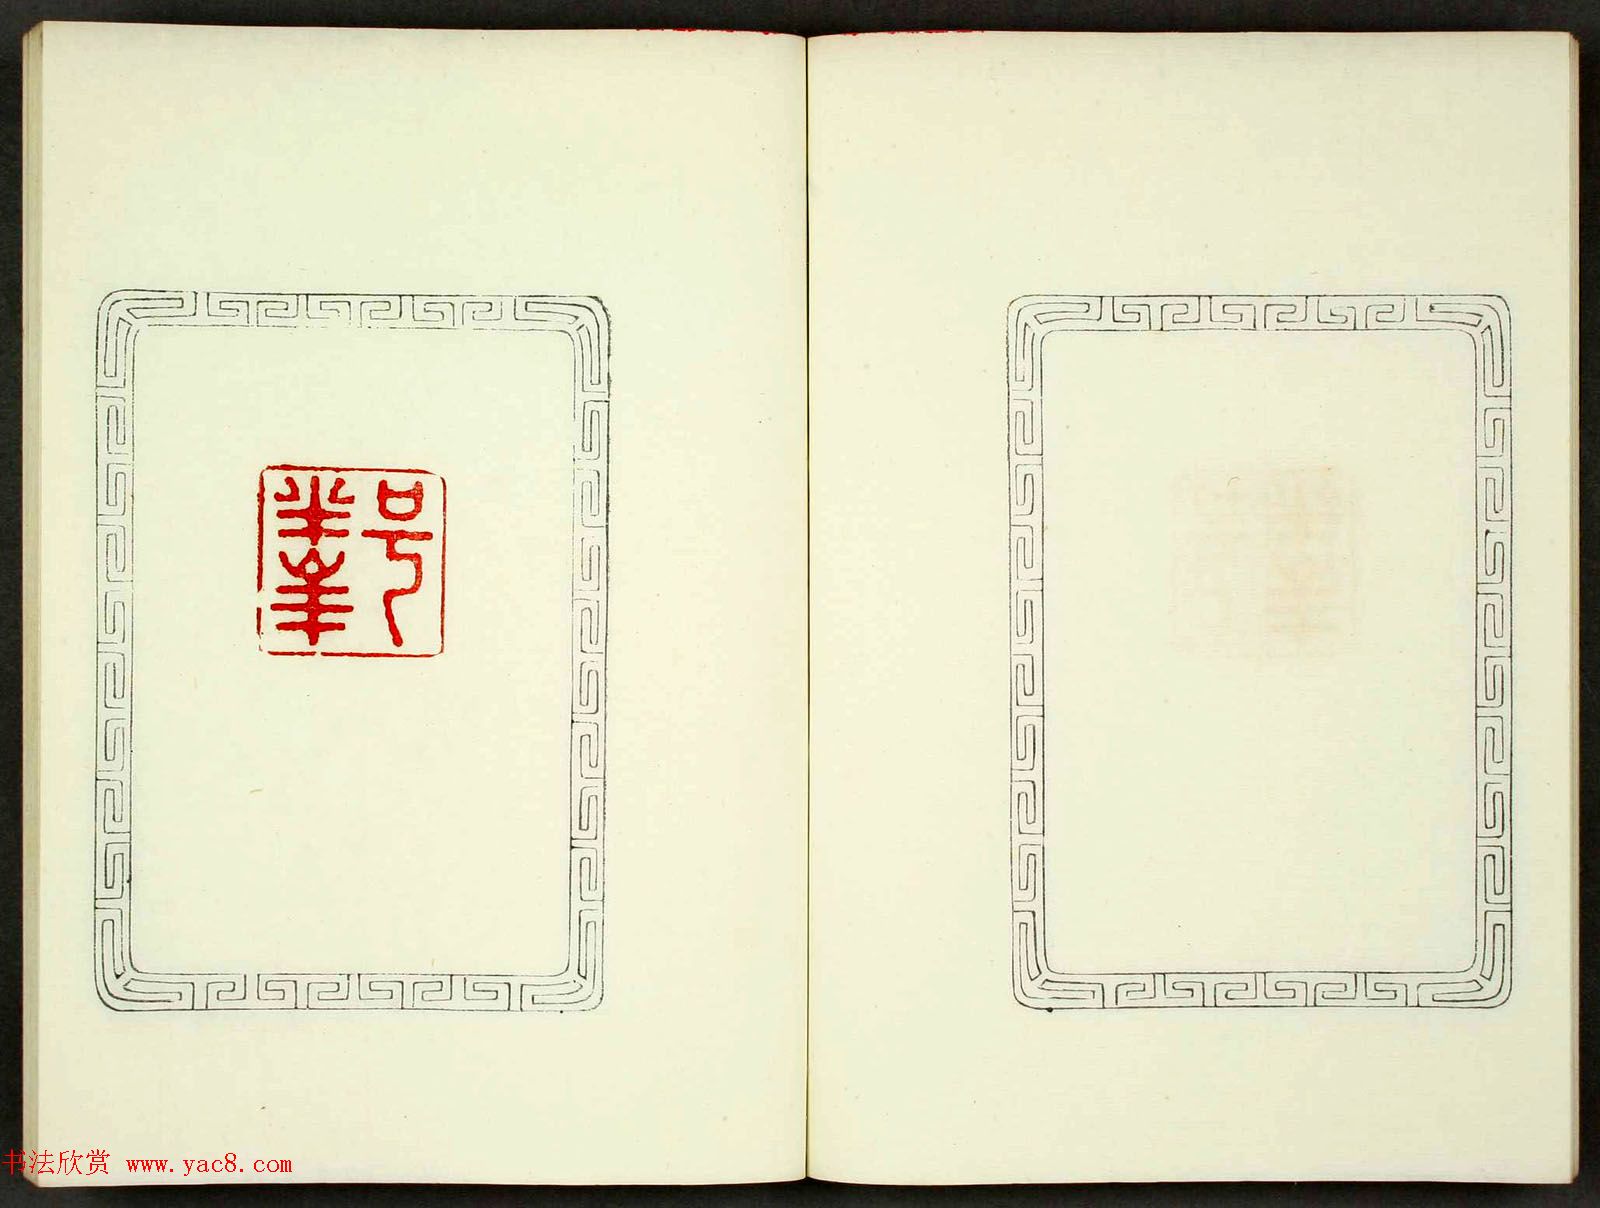 号
书法欣赏 www.yac8.com